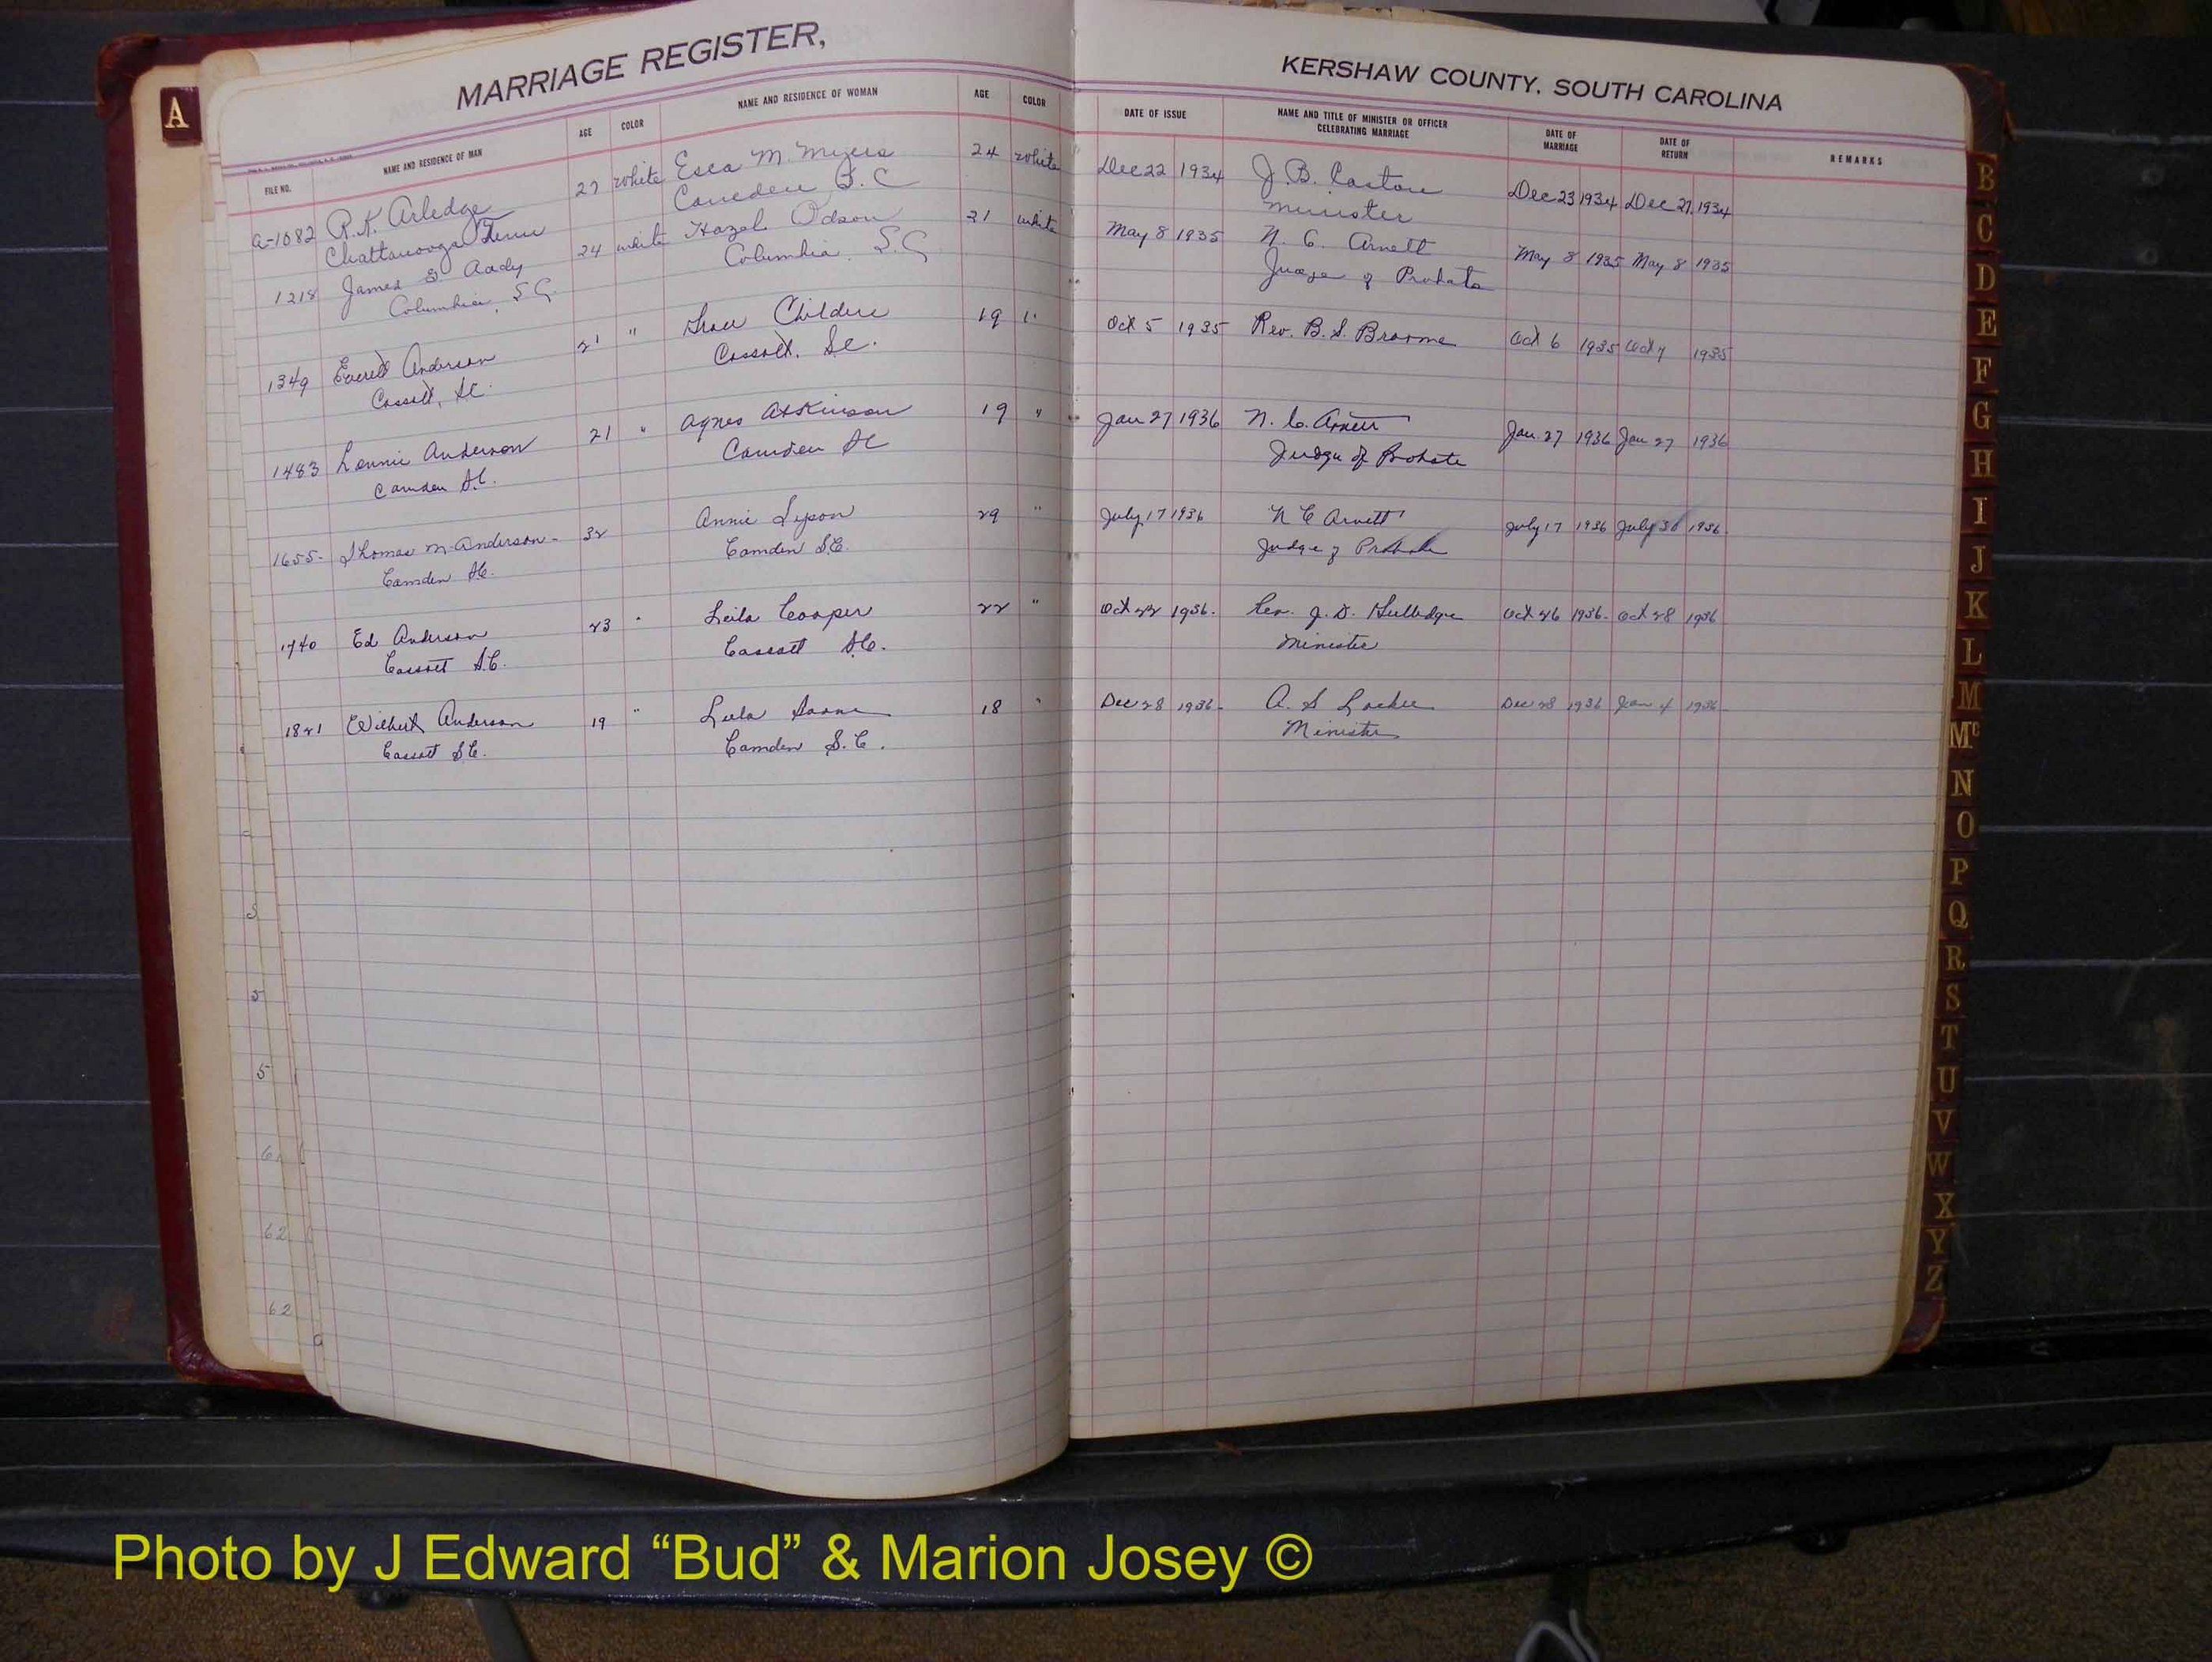 MARRIAGE REGISTER,
KERSHAW COUNTY, SOUTH CAROLINA
A
FILE NO. NAME AND RESIDENCE OF MAN AGE COLOR NAME AND RESIDENCE OF WOMAN AGE COLOR DATE OF ISSUE NAME AND TITLE OF MINISTER OR OFFICER CELEBRATING MARRIAGE DATE OF MARRIAGE DATE OF RETURN REMARKS
a-1082 R.K. Arledge 27 white Esca M. Myers 24 white Dec 22 1934 J. B. Caston Dec 23 1934 Dec 27 1934
Chattanooga Tenn Camden S.C Minister
1218 James Aady 24 white Hazel Odson 21 white May 8 1935 N. C. Arnett May 8 1935 May 8 1935
Columbia, S.C. Columbia S.C Judge of Probate
1349 Everett Anderson 21 " Childers 19 " Oct 5 1935 Rev. B. S. Broome Oct 6 1935 Oct 7 1935
Cassatt, SC. Cassatt, SC.
1483 Lennie Anderson 21 " Agnes Atkinson 19 " Jan 27 1936 N. C. Arnett Jan. 27 1936 Jan 27 1936
Camden SC. Camden SC Judge of Probate
1655- Thomas M. Anderson - 32 Annie 29 " July 17 1936 N C Arnett July 17 1936 July 30 1936.
Camden SC. Camden SC. Judge of Probate
1740 Ed Anderson 23 " Leila Cooper 22 " Oct 22 1936. Rev. J. D. Oct 26 1936. Oct 28 1936
Cassatt S.C. Cassatt SC. Minister
1821 Wilbert Anderson 19 " Lula 18 " Dec 28 1936- A. S. Dec 28 1936 Jan 4 1936-
Cassatt SC. Camden S.C. Minister
B
C
D
E
F
G
H
I
J
K
L
M
Mc
N
O
P
Q
R
S
T
U
V
W
X
Y
Z
5
5
62
62
Photo by J Edward “Bud” & Marion Josey ©